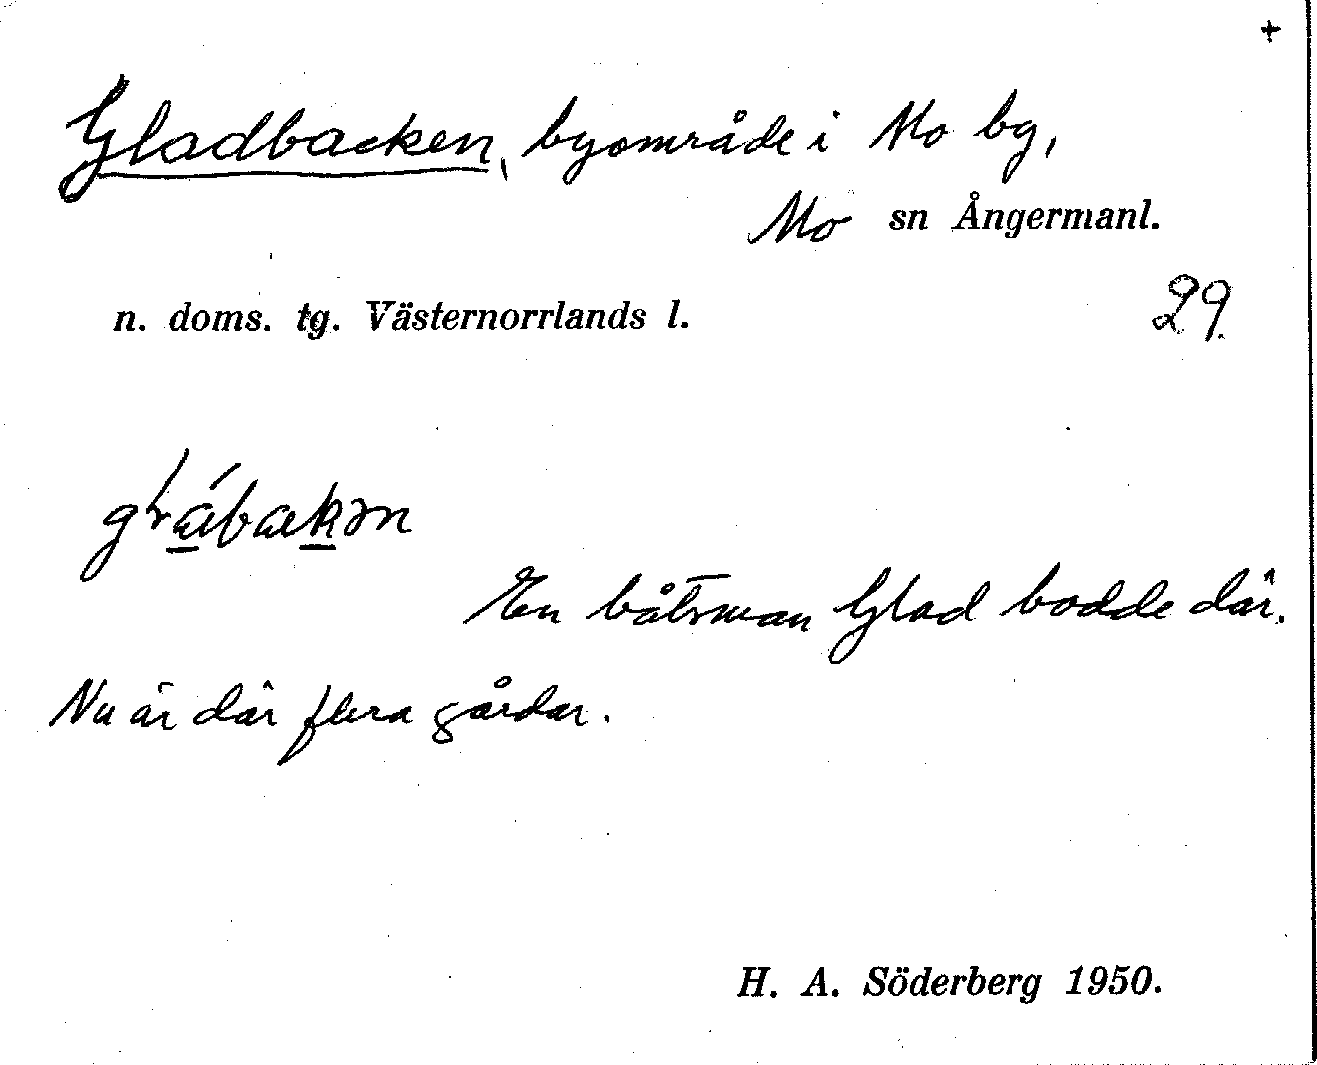 +
Gladbacken, byområde i Mo by,
Mo sn Ångermanl.
n. doms. tg. Västernorrlands l.
29.
En båtsman Glad bodde där.
Nu är där flera gårdar.
H. A. Söderberg 1950.